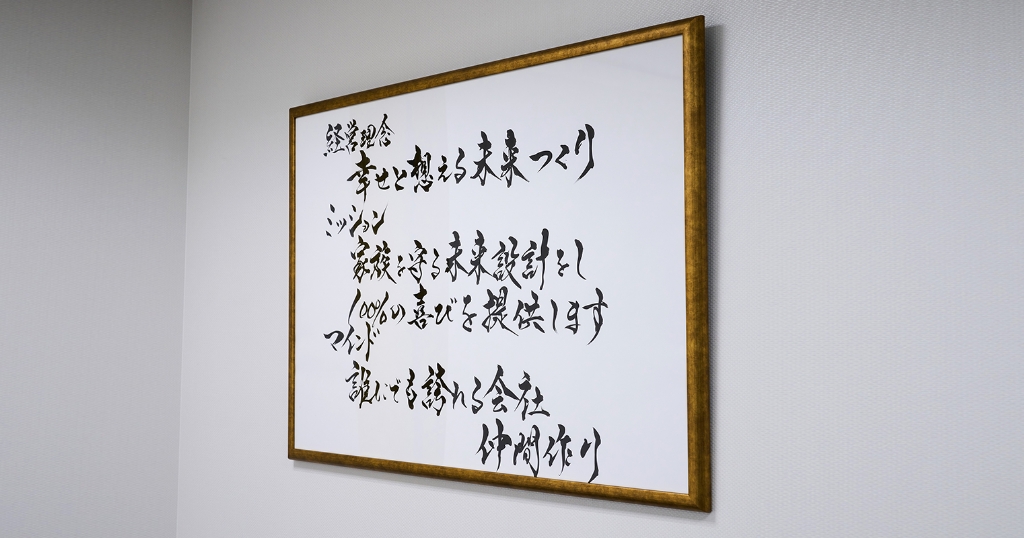 経営理念
幸せと想える未来つくり
ミッション
家族を守る未来設計をし
100%の喜びを提供します
マインド
誰にでも誇れる会社
仲間作り